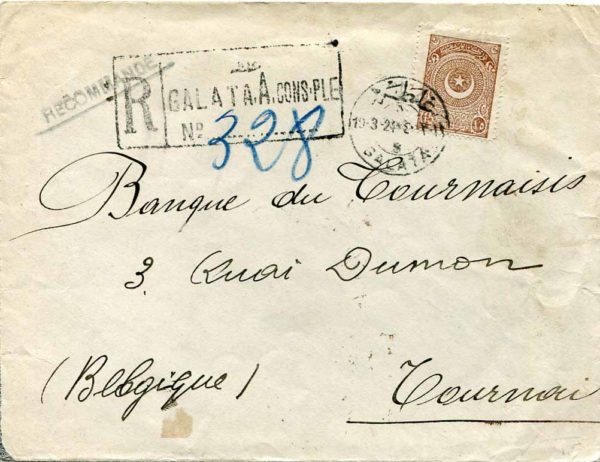 RECOMMANDÉ
R
GALATA.A.CONS.PLE
No 328
19-3-24
GALATA
Banque du Tournaisis
3 Quai Dumon
(Belgique)
Tournai